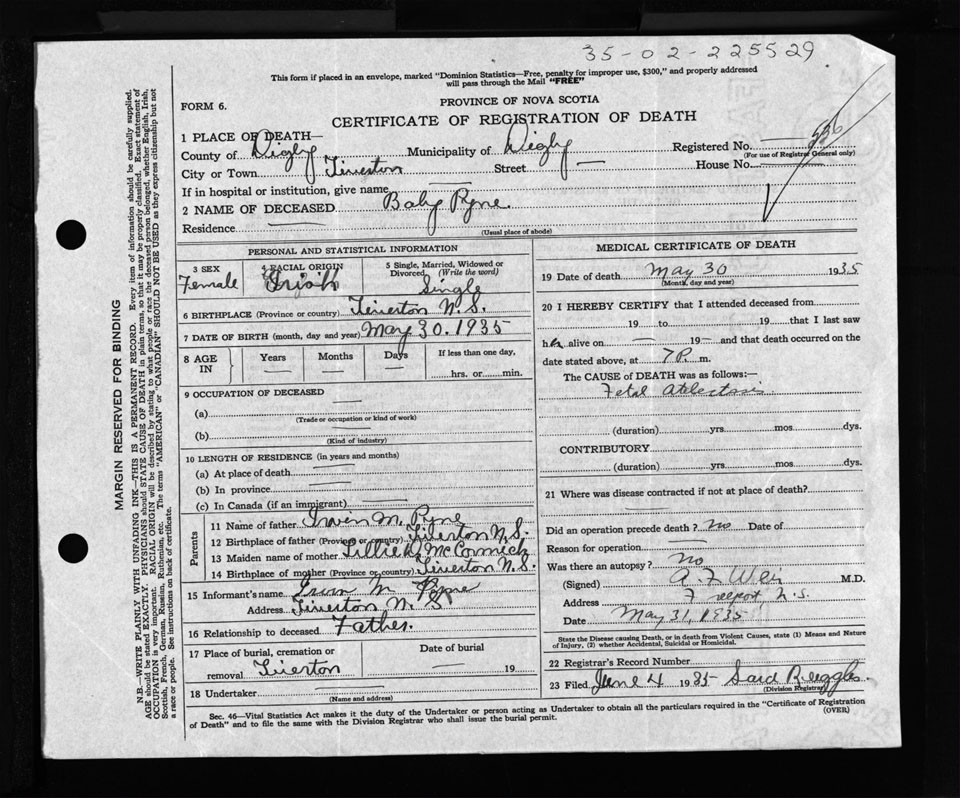 35-02-225529
This form if placed in an envelope, marked "Dominion Statistics—Free, penalty for improper use, $300," and properly addressed
will pass through the Mail "FREE"
FORM 6.
PROVINCE OF NOVA SCOTIA
CERTIFICATE OF REGISTRATION OF DEATH
1 PLACE OF DEATH—
County of Digby Municipality of Digby Registered No. 536
(For use of Registrar General only)
City or Town Tiverton Street — House No. —
If in hospital or institution, give name —
2 NAME OF DECEASED Baby Pyne.
Residence —
(Usual place of abode)
PERSONAL AND STATISTICAL INFORMATION
3 SEX 4 RACIAL ORIGIN 5 Single, Married, Widowed or Divorced (Write the word)
Female Irish Single
6 BIRTHPLACE (Province or country) Tiverton N.S.
7 DATE OF BIRTH (month, day and year) May 30. 1935
8 AGE IN Years Months Days If less than one day,
— — — hrs. or min.
9 OCCUPATION OF DECEASED —
(a)
(Trade or occupation or kind of work)
(b) —
(Kind of industry)
10 LENGTH OF RESIDENCE (in years and months)
(a) At place of death —
(b) In province —
(c) In Canada (if an immigrant) —
Parents
11 Name of father Irwin M. Pyne
12 Birthplace of father (Province or country) Tiverton N.S.
13 Maiden name of mother McCormick
14 Birthplace of mother (Province or country) Tiverton N.S.
15 Informant's name Irwin M Pyne
Address Tiverton N S
16 Relationship to deceased Father.
17 Place of burial, cremation or removal Tiverton Date of burial — 19
18 Undertaker —
(Name and address)
MEDICAL CERTIFICATE OF DEATH
19 Date of death May 30 1935
(Month, day and year)
20 I HEREBY CERTIFY that I attended deceased from
19 to 19 that I last saw
h alive on — 19 — and that death occurred on the
date stated above, at 7 P. m.
The CAUSE of DEATH was as follows:—
Fetal Atelectasis
(duration) yrs. mos. dys.
CONTRIBUTORY
(duration) yrs. mos. dys.
21 Where was disease contracted if not at place of death? —
Did an operation precede death? No Date of
Reason for operation —
Was there an autopsy? No
(Signed) A F Weir M.D.
Address Freeport N.S.
Date May 31, 1935
State the Disease causing Death, or in death from Violent Causes, state (1) Means and Nature
of Injury, (2) whether Accidental, Suicidal or Homicidal.
22 Registrar's Record Number
23 Filed June 4 1935 Ruggles.
(Division Registrar)
Sec. 46—Vital Statistics Act makes it the duty of the Undertaker or person acting as Undertaker to obtain all the particulars required in the "Certificate of Registration
of Death" and to file the same with the Division Registrar who shall issue the burial permit. (OVER)
MARGIN RESERVED FOR BINDING
N.B.—WRITE PLAINLY WITH UNFADING INK—THIS IS A PERMANENT RECORD. Every item of information should be carefully supplied.
AGE should be stated EXACTLY. PHYSICIANS should STATE CAUSE OF DEATH in plain terms, so that it may be properly classified. Exact statement of
OCCUPATION is very important. RACIAL ORIGIN will be described by stating to what people or race the deceased person belonged, whether English, Irish,
Scottish, French, German, Russian, Ruthenian, etc. The terms "AMERICAN" or "CANADIAN" SHOULD NOT BE USED as they express citizenship but not
a race or people. See instructions on back of certificate.